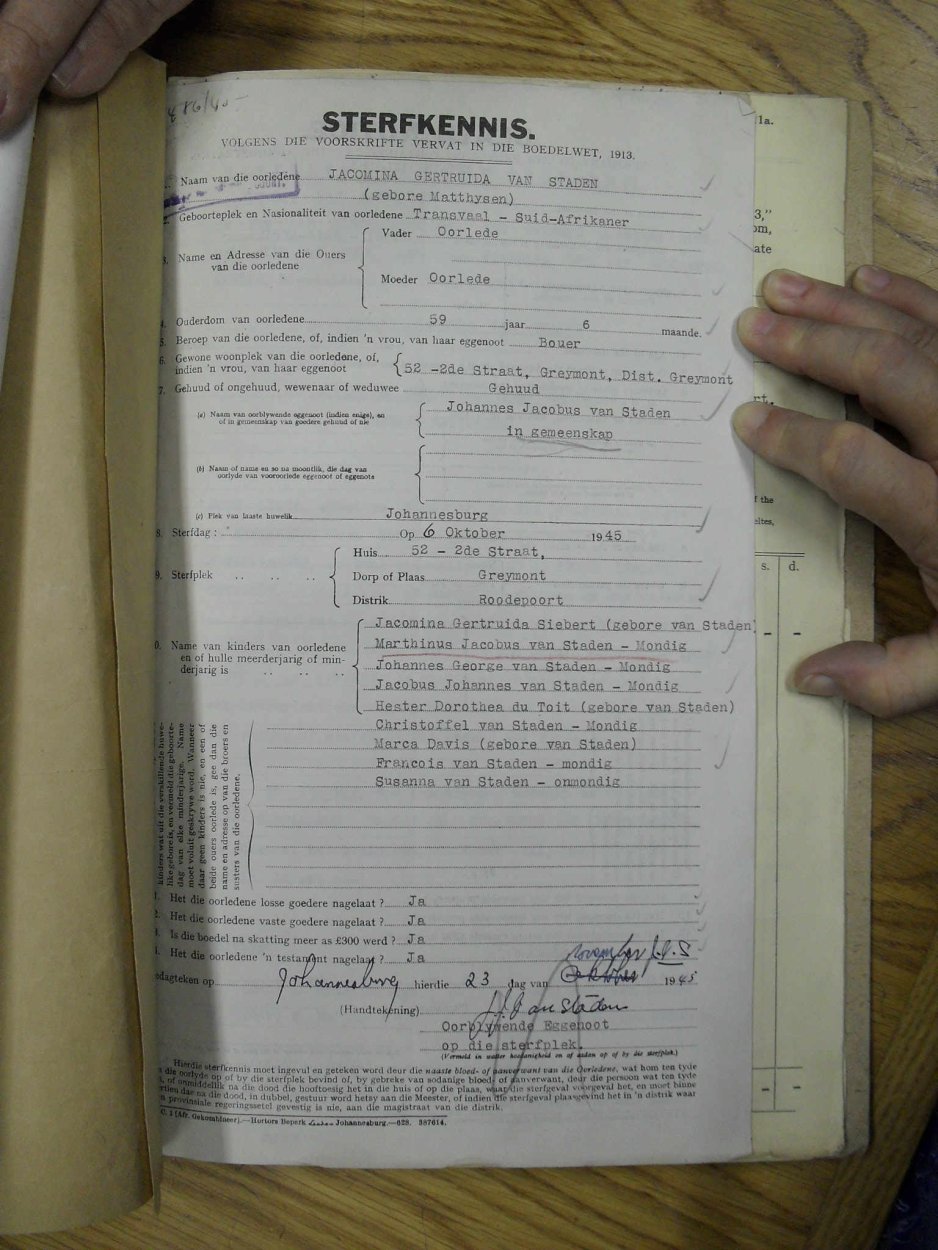 STERFKENNIS.
VOLGENS DIE VOORSKRIFTE VERVAT IN DIE BOEDELWET, 1913.
Naam van die oorledene JACOMINA GERTRUIDA VAN STADEN
(gebore Matthysen)
Geboorteplek en Nasionaliteit van oorledene Transvaal - Suid-Afrikaner
3. Name en Adresse van die Ouers van die oorledene
Vader Oorlede
Moeder Oorlede
Ouderdom van oorledene 59 jaar 6 maande.
5. Beroep van die oorledene, of, indien 'n vrou, van haar eggenoot Bouer
6. Gewone woonplek van die oorledene, of,
indien 'n vrou, van haar eggenoot 52 -2de Straat, Greymont, Dist. Greymont
7. Gehuud of ongehuud, wewenaar of weduwee Gehuud
(a) Naam van oorblywende eggenoot (indien enige), en
of in gemeenskap van goedere gehuud of nie
Johannes Jacobus van Staden
in gemeenskap
(b) Naam of name en so na moontlik, die dag van
oorlyde van vooroorlede eggenoot of eggenote
(c) Plek van laaste huwelik Johannesburg
8. Sterfdag : Op 6 Oktober 1945
9. Sterfplek
Huis 52 - 2de Straat,
Dorp of Plaas Greymont
Distrik Roodepoort
0. Name van kinders van oorledene
en of hulle meerderjarig of min-
derjarig is
Jacomina Gertruida Siebert (gebore van Staden
Marthinus Jacobus van Staden - Mondig
Johannes George van Staden - Mondig
Jacobus Johannes van Staden - Mondig
Hester Dorothea du Toit (gebore van Staden)
Christoffel van Staden - Mondig
Marca Davis (gebore van Staden)
Francois van Staden - mondig
Susanna van Staden - onmondig
kinders wat uit die verskillende huwe-
like gebore is, en vermeld die geboorte-
dag van elke minderjarige. Name
moet voluit geskrywe word. Wanneer
daar geen kinders is nie, en een of
beide ouers oorlede is, gee dan die
name en adresse op van die broers en
susters van die oorledene.
1. Het die oorledene losse goedere nagelaat ? Ja
2. Het die oorledene vaste goedere nagelaat ? Ja
Is die boedel na skatting meer as £300 werd ? Ja
Het die oorledene 'n testament nagelaat ? Ja
edagteken op Johannesburg hierdie 23 dag van November 1945
(Handtekening) van Staden
Oorblywende Eggenoot
op die sterfplek.
(Vermeld in watter hoedanigheid en of aldan op of by die sterfplek.)
Hierdie sterfkennis moet ingevul en geteken word deur die naaste bloed- of aanverwant van die Oorledene, wat hom ten tyde
die oorlyde op of by die sterfplek bevind of, by gebreke van sodanige bloed- of aanverwant, deur die persoon wat ten tyde
, of onmiddellik na die dood die hooftoesig het in die huis of op die plaas, waar die sterfgeval voorgeval het, en moet binne
dae na die dood, in dubbel, gestuur word hetsy aan die Meester, of indien die sterfgeval plaasgevind het in 'n distrik waar
n provinsiale regeringssetel gevestig is nie, aan die magistraat van die distrik.
1 (Afr. Gekombineer).—Hortors Beperk Johannesburg.—628. 387614.
1a.
3,"
om,
ate
rt.
f the
eltes,
s. d.